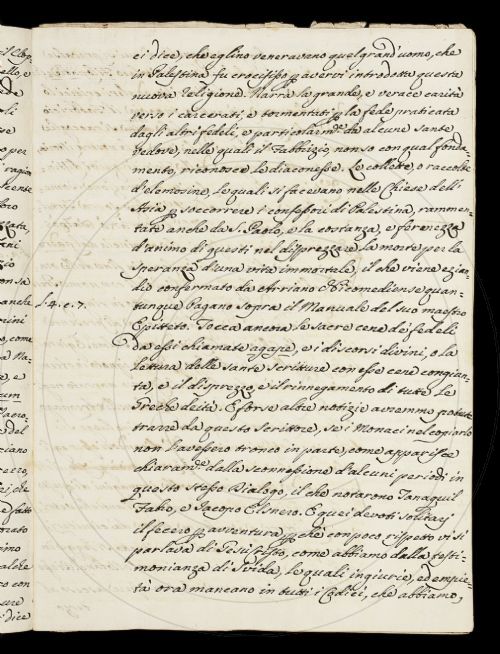 ci dice, che eglino veneravano quel grand'uomo, che
in Palestina fu crocifisso p avervi introdotta questa
nuova Religione. Narra la grande, e verace carità
verso i carcerati, e tormentati p la fede praticata
dagli altri fedeli, e particolarm.te da alcune sante
vedove, nelle quali il Fabbrizio, non so con qual fonda=
mento, riconosce le diaconesse. Le collette, o raccolte
d'elemosine, le quali si facevano nelle Chiese dell'
Asia p soccorrere i confessori di Palestina, rammen=
tate anche da S. Paolo, e la costanza, e fortezza
d'animo di questi nel disprezzare la morte per la
speranza d'una vita immortale, il che viene ezian=
dio confermato da Arriano Nicomediense quan=
L. 4. c. 7.
tunque Pagano sopra il Manuale del suo maestro
Epitteto. Tocca ancora le sacre cene de' fedeli
da essi chiamate agape, e i discorsi divini, o la
lettura delle sante scritture con esse cene congiun=
ta, e il disprezzo, e il rinnegamento di tutte le
Greche deità. E forse altre notizie avremmo potute
trarre da questo scrittore, se i Monaci nel copiarlo
non l'avessero tronco in parte, come apparisce
chiaram.te dalla sconnessione d'alcuni periodi in
questo stesso Dialogo, il che notarono Tanaquil
Fabro, e Jacopo Elsnero. E quei devoti solitarj
il fecero p avventura pchè con poco rispetto vi si
parlava di Gesù Cristo, come abbiamo dalla testi=
monianza di Svida, le quali ingiurie, ed empie=
tà ora mancano in tutti i Codici, che abbiamo,